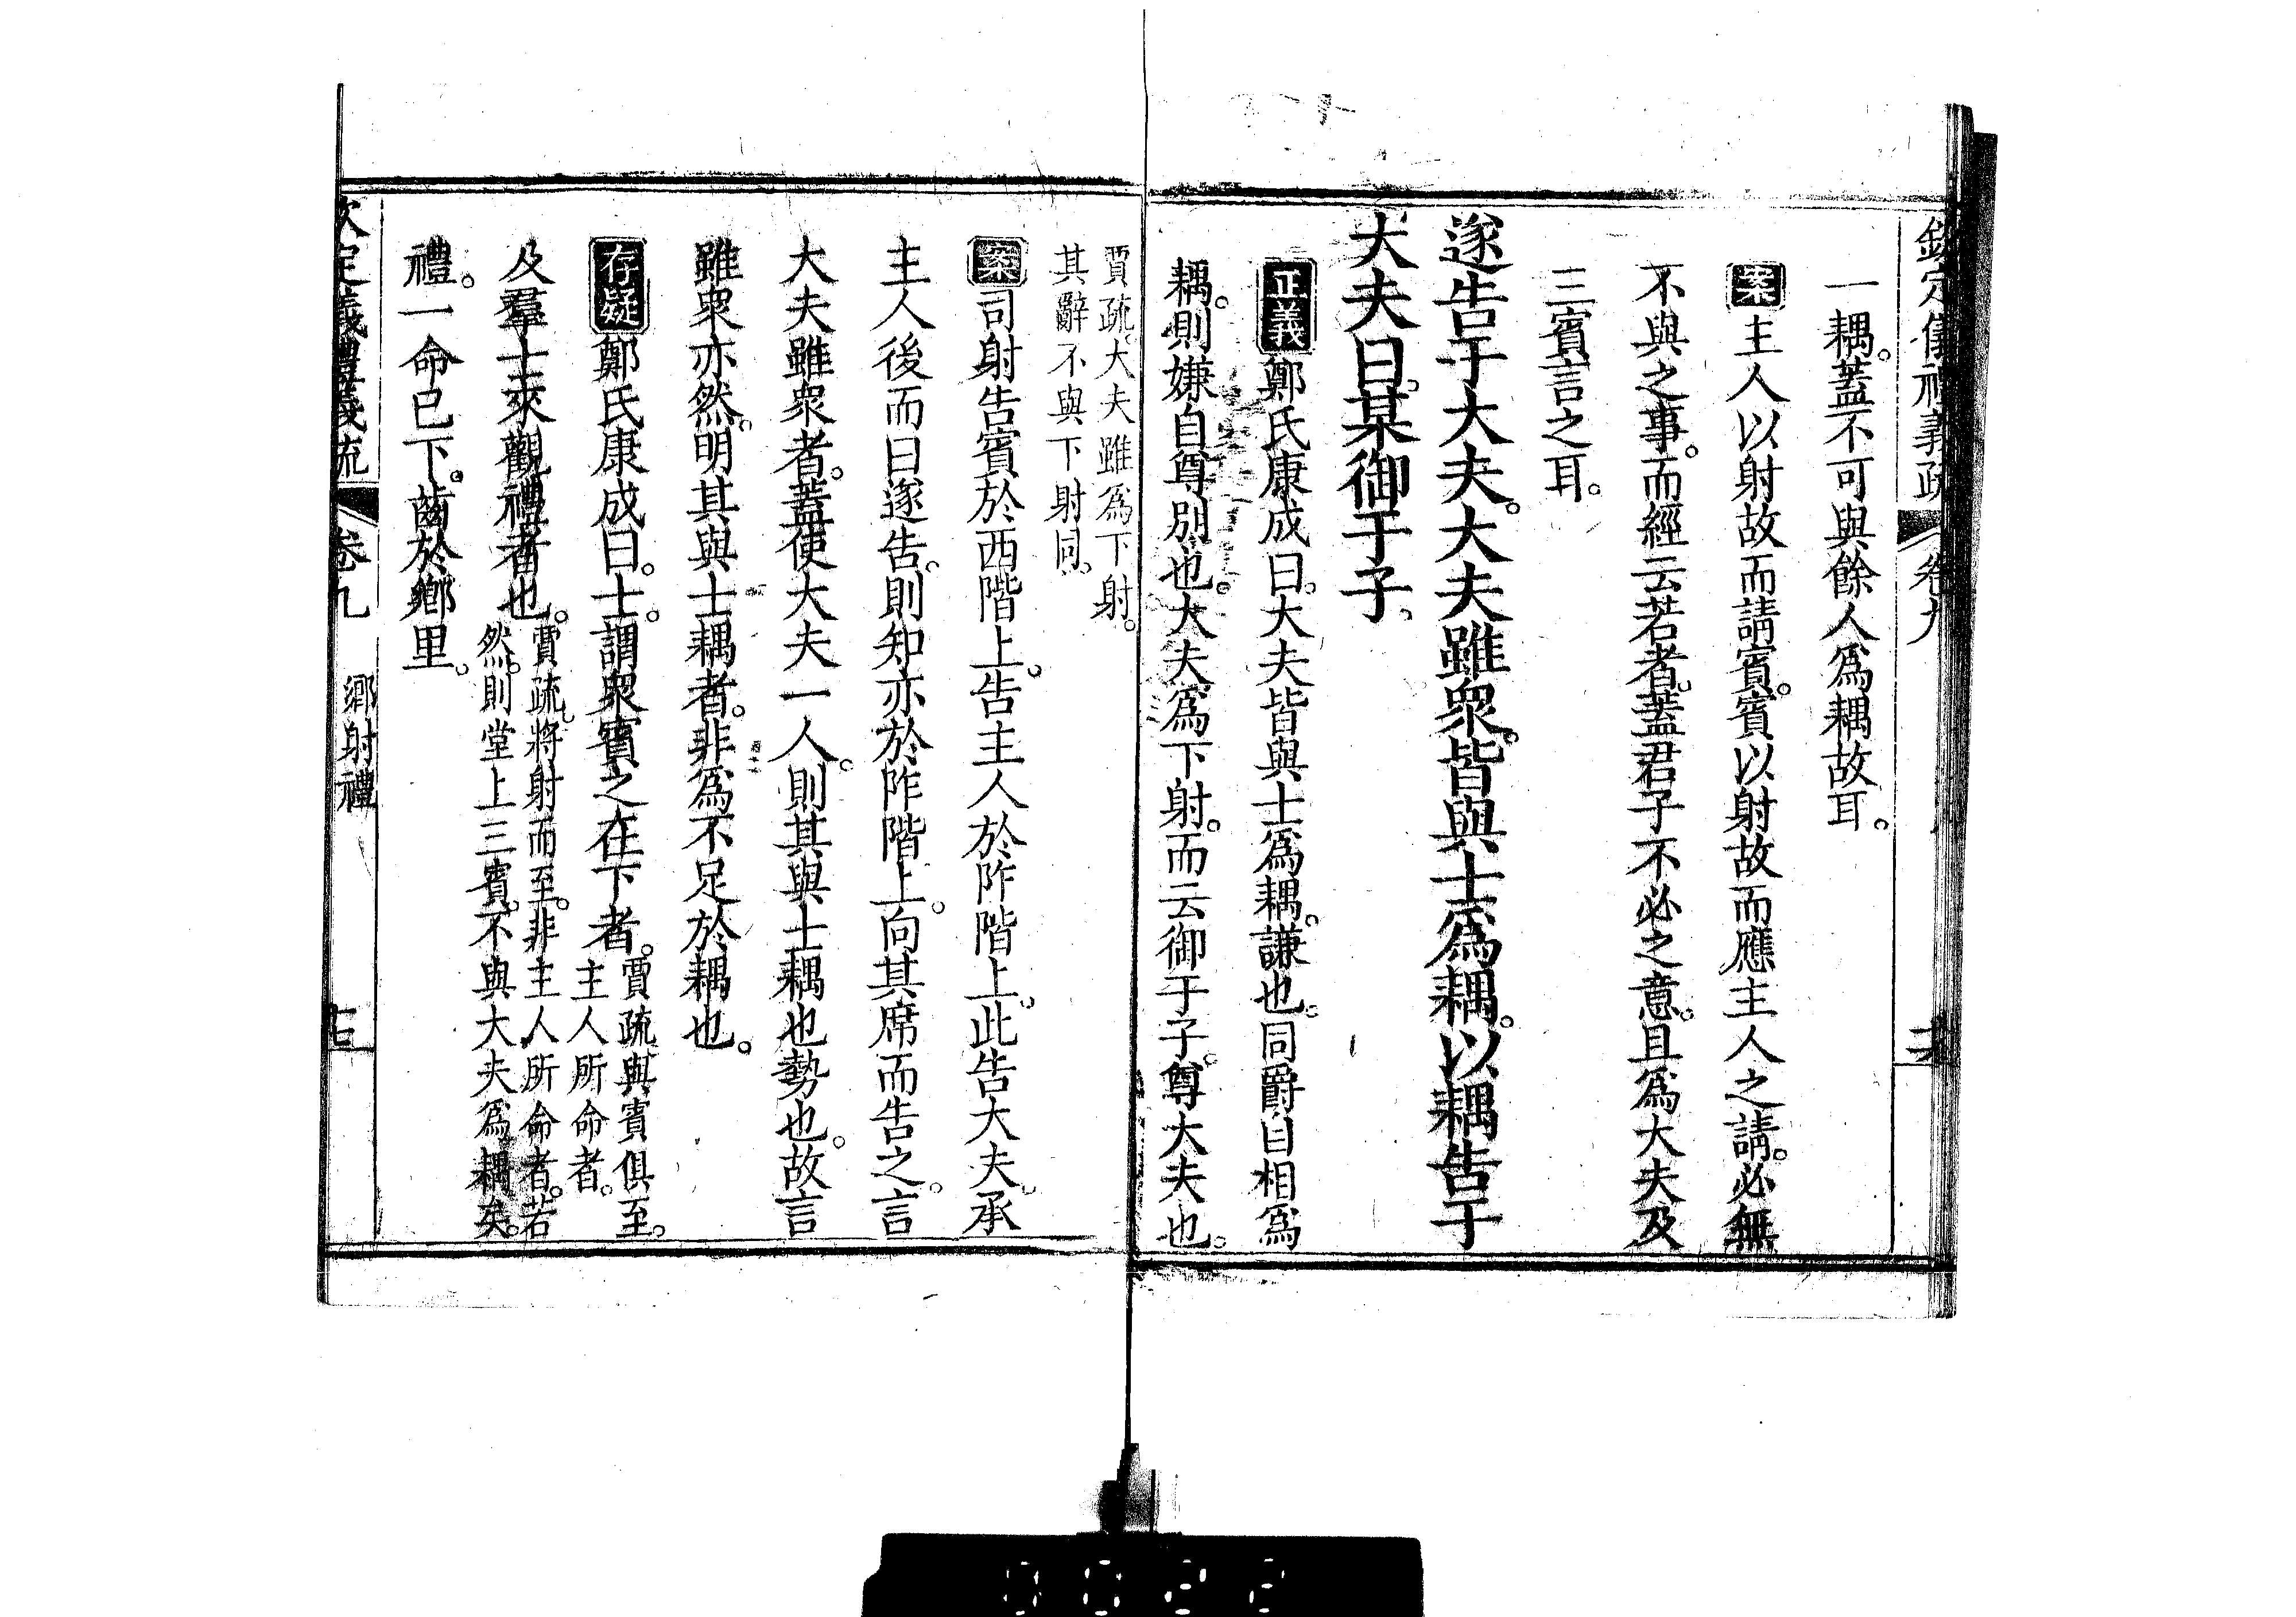 欽定儀禮義疏 卷九
一耦。蓋不可與餘人爲耦故耳。
案 主人以射故而請賓。賓以射故而應主人之請。必無
不與之事。而經云若者。蓋君子不必之意。且爲大夫及
三賓言之耳。
遂告于大夫。大夫雖衆。皆與士爲耦。以耦告于
大夫曰。某御于子。
正義 鄭氏康成曰。大夫皆與士爲耦。謙也。同爵自相爲
耦。則嫌自尊別也。大夫爲下射。而云御于子。尊大夫也。
賈疏。大夫雖爲下射。
其辭不與下射同。
案 司射告賓於西階上。告主人於阼階上。此告大夫。承
主人後而曰遂告。則知亦於阼階上。向其席而告之。言
大夫雖衆者。蓋使大夫一人。則其與士耦也勢也。故言
雖衆亦然。明其與士耦者。非爲不足於耦也。
存疑 鄭氏康成曰。士。謂衆賓之在下者。賈疏。與賓俱至。主人所命者。
及羣士來觀禮者也。賈疏。將射而至。非主人所命者。若然。則堂上三賓。不與大夫爲耦矣。
禮。一命已下。齒於鄉里。
欽定儀禮義疏 卷九 鄉射禮